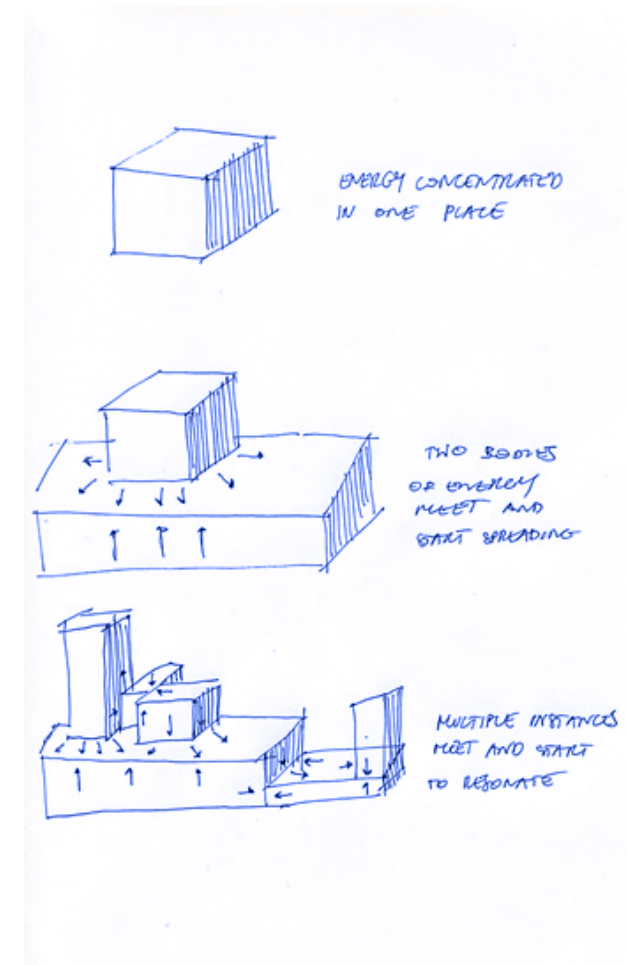 ENERGY CONCENTRATED
IN ONE PLACE
TWO BODIES
OF ENERGY
MEET AND
START SPREADING
MULTIPLE INSTANCES
MEET AND START
TO RESONATE